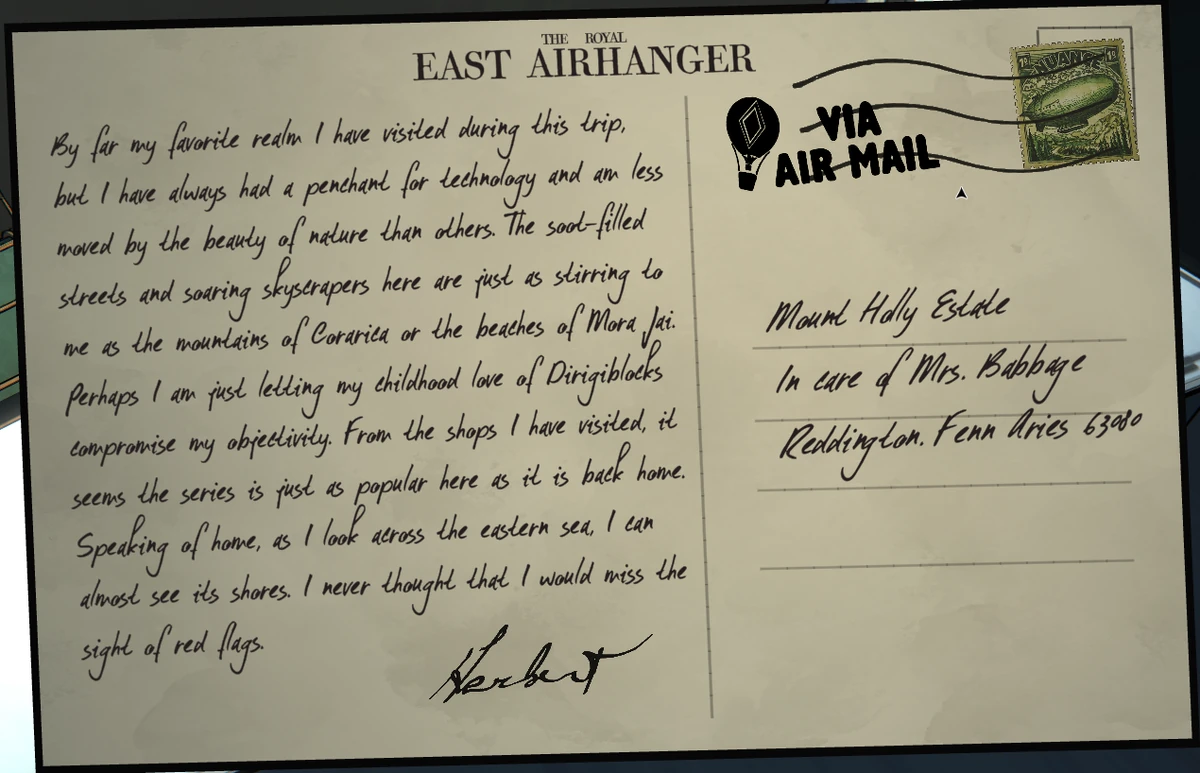 THE ROYAL
EAST AIRHANGER
By far my favorite realm I have visited during this trip,
but I have always had a penchant for technology and am less
moved by the beauty of nature than others. The soot-filled
streets and soaring skyscrapers here are just as stirring to
me as the mountains of Corarica or the beaches of Mora Jai.
Perhaps I am just letting my childhood love of Dirigiblocks
compromise my objectivity. From the shops I have visited, it
seems the series is just as popular here as it is back home.
Speaking of home, as I look across the eastern sea, I can
almost see its shores. I never thought that I would miss the
sight of red flags.
Herbert
VIA
AIR MAIL
1d NUANCE 1d
Mount Holly Estate
In care of Mrs. Babbage
Reddington. Fenn Aries 63080